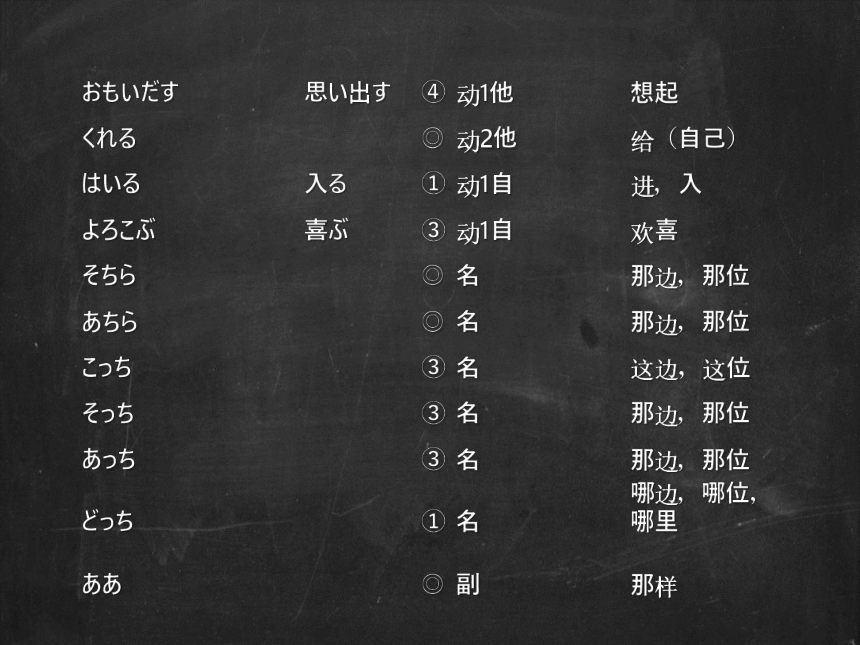 おもいだす 思い出す ④ 动1他 想起
くれる ◎ 动2他 给（自己）
はいる 入る ① 动1自 进，入
よろこぶ 喜ぶ ③ 动1自 欢喜
そちら ◎ 名 那边，那位
あちら ◎ 名 那边，那位
こっち ③ 名 这边，这位
そっち ③ 名 那边，那位
あっち ③ 名 那边，那位
哪边，哪位，
どっち ① 名 哪里
ああ ◎ 副 那样